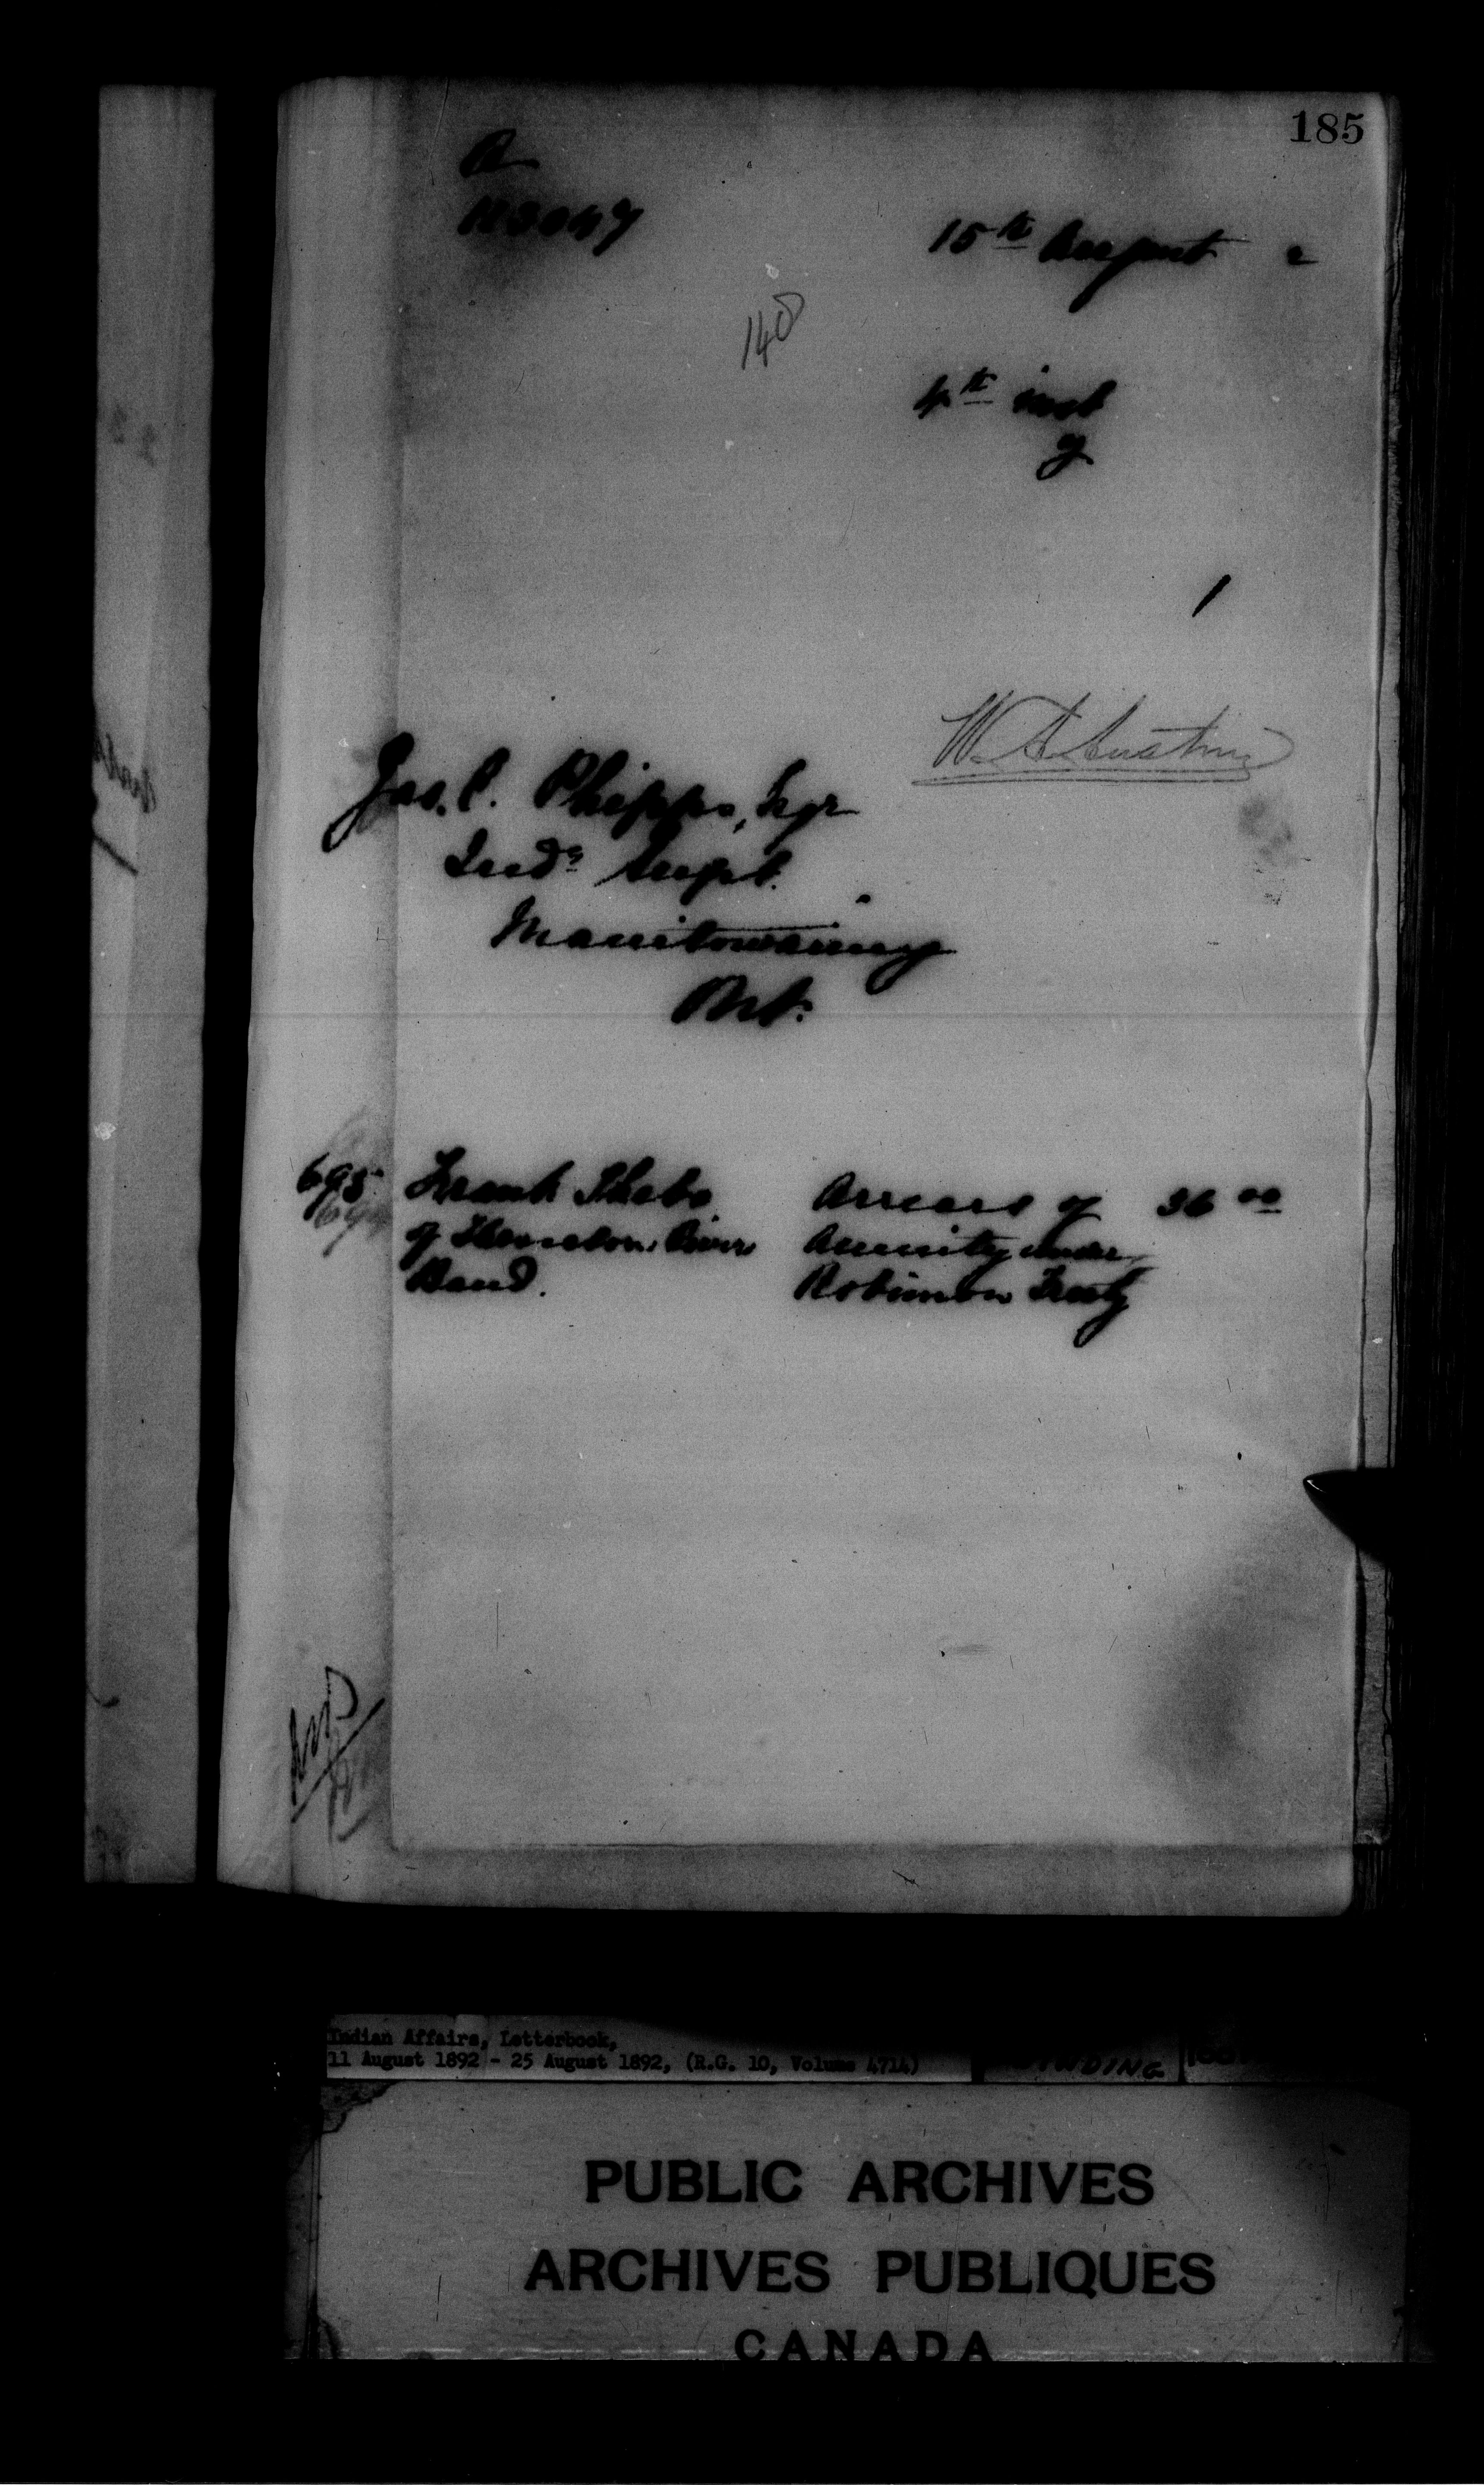 185
A
15th August 2
140
4th inst
of
1
W. A. Austin
Jas. C. Phipps, Esqr
Indn Supt.
Manitowaning
Ont.
695 Frank Thebo Arrears of 36 00
of River Annuity under
Band. Robinson Treaty
Indian Affairs, Letterbook,
11 August 1892 - 25 August 1892, (R.G. 10, Volume 4714)
PUBLIC ARCHIVES
ARCHIVES PUBLIQUES
CANADA